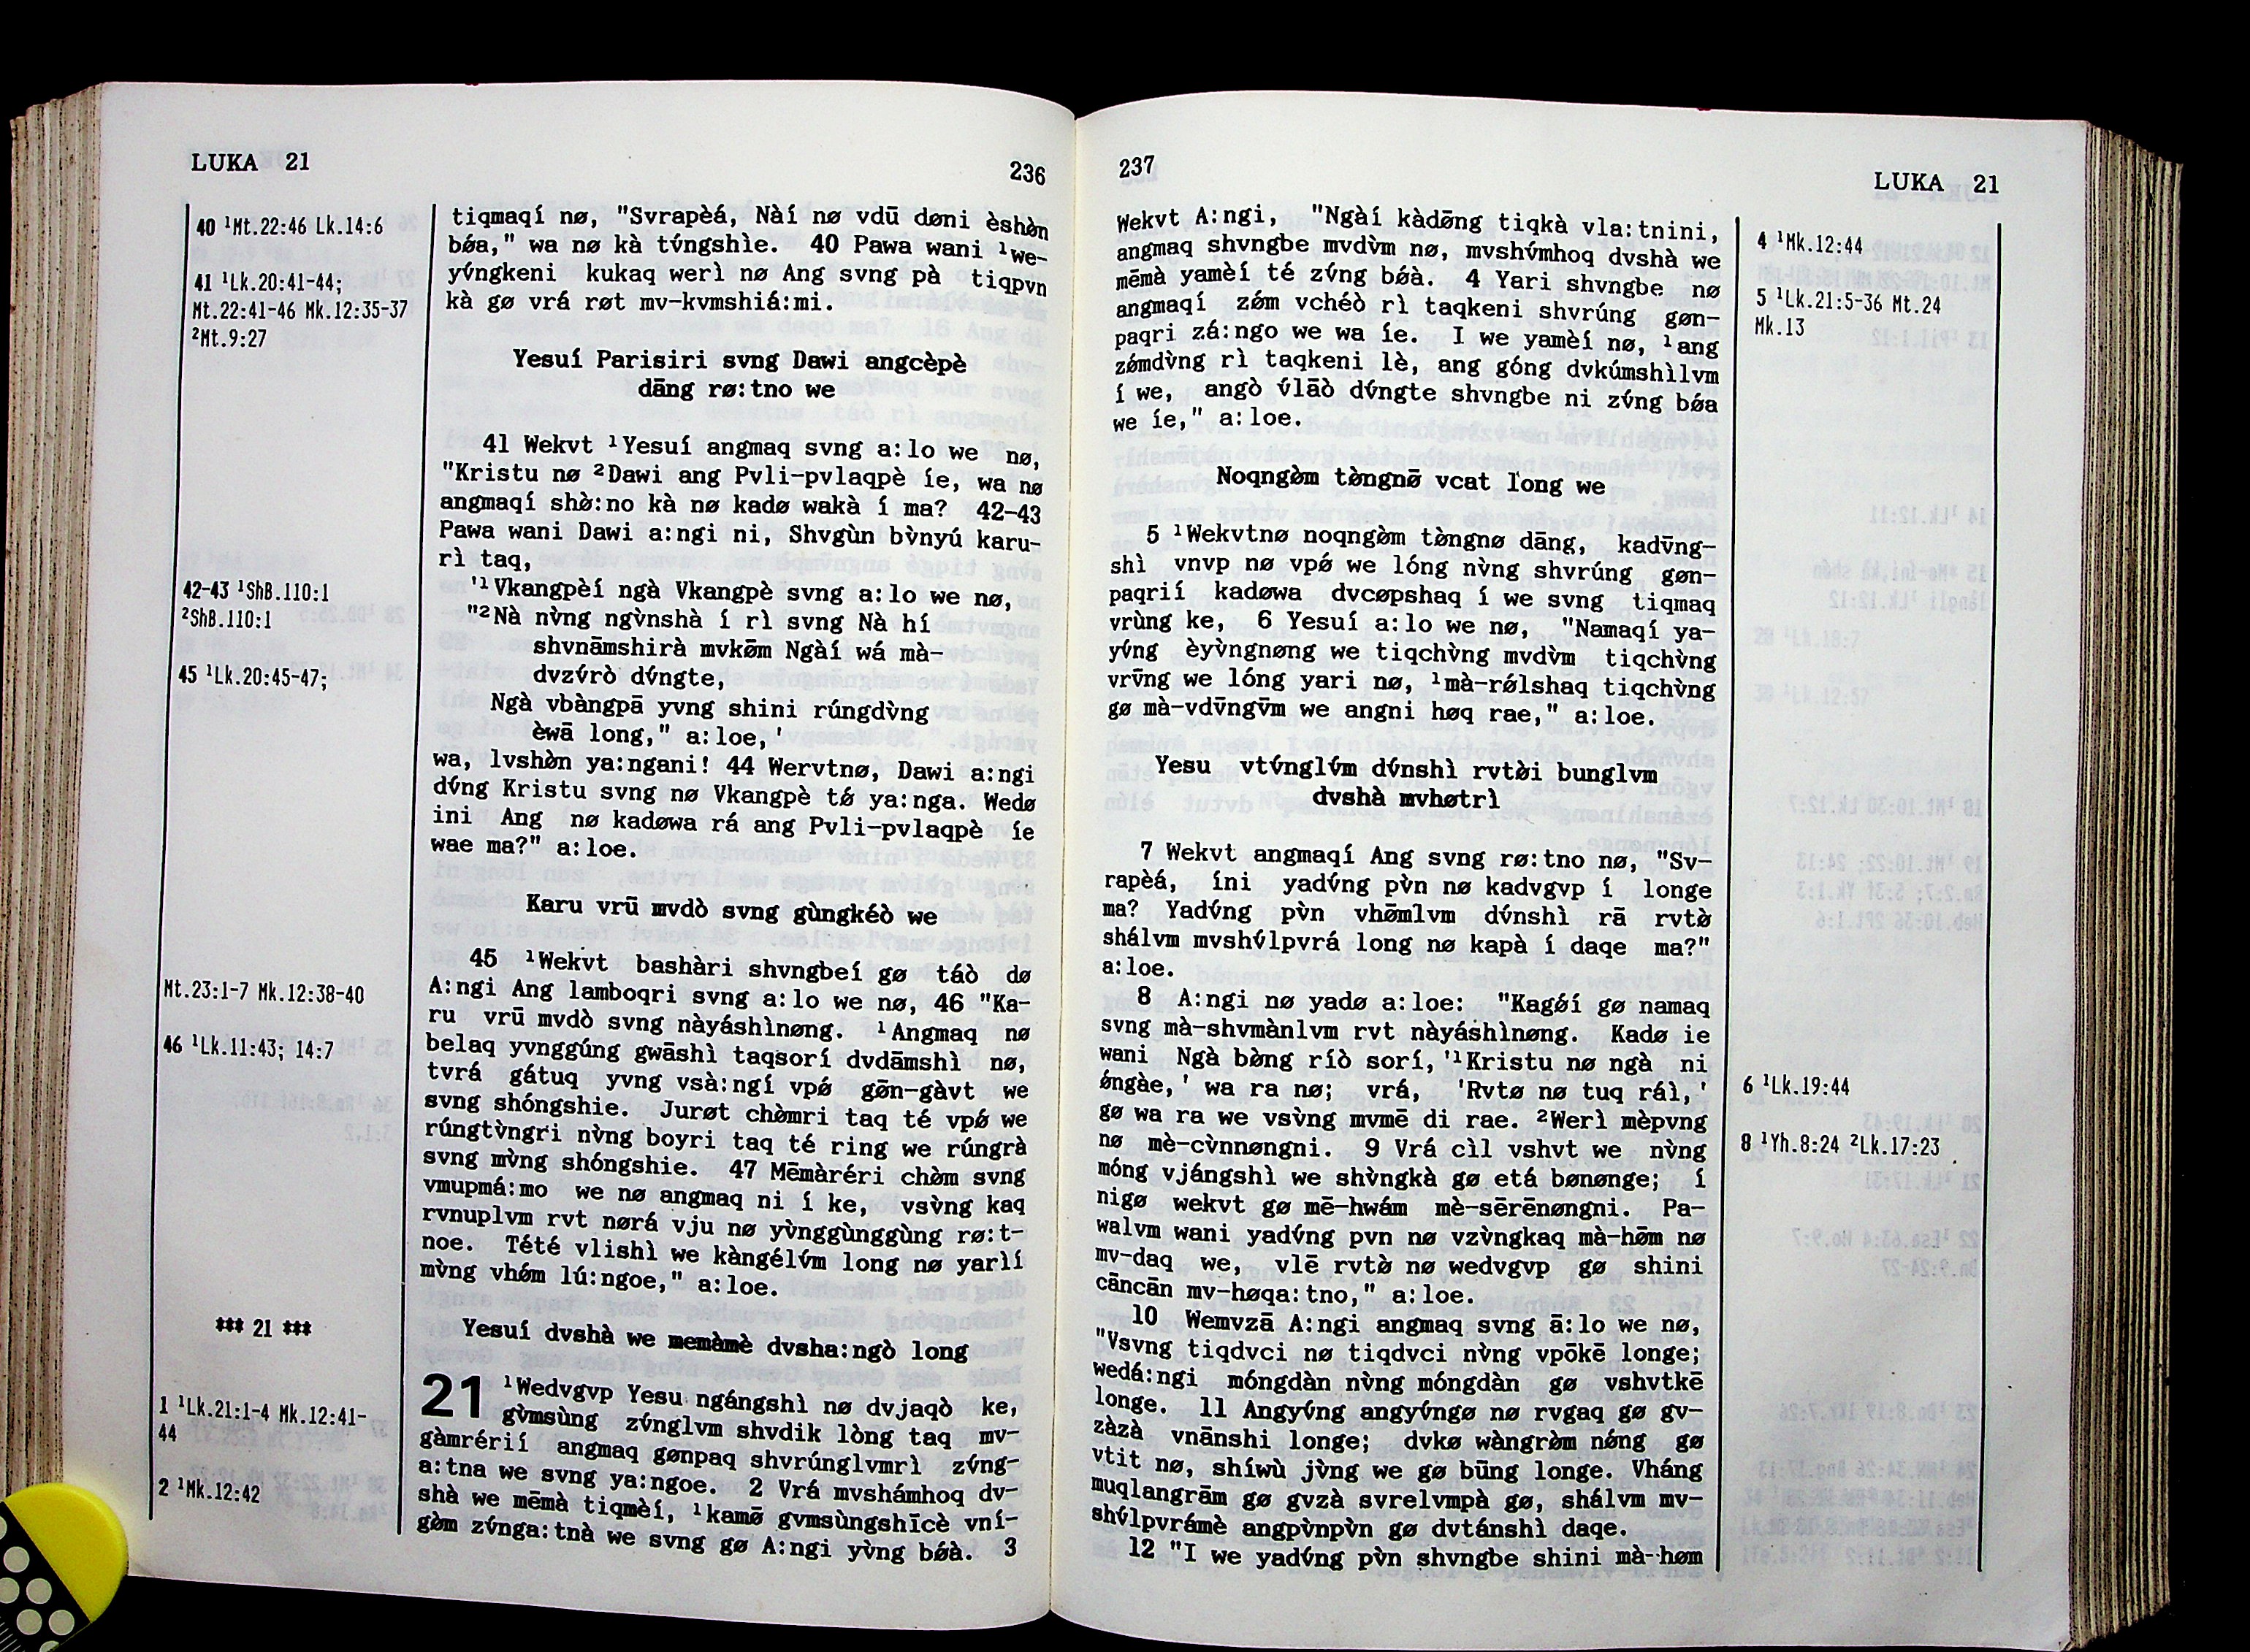 LUKA 21
236
40 ¹Mt.22:46 Lk.14:6
41 ¹Lk.20:41-44;
Mt.22:41-46 Mk.12:35-37
²Mt.9:27
42-43 ¹ShB.110:1
²ShB.110:1
45 ¹Lk.20:45-47;
Mt.23:1-7 Mk.12:38-40
46 ¹Lk.11:43; 14:7
*** 21 ***
1 ¹Lk.21:1-4 Mk.12:41-
44
2 ¹Mk.12:42
tiqmaqí nø, "Svrapèá, Nàí nø vdū døni èshøn
bǿa," wa nø kà tv́ngshìe. 40 Pawa wani ¹we-
yv́ngkeni kukaq werì nø Ang svng pà tiqpvn
kà gø vrá røt mv-kvmshiá:mi.
Yesuí Parisiri svng Dawi angcèpè
dāng rø:tno we
41 Wekvt ¹Yesuí angmaq svng a:lo we nø,
"Kristu nø ²Dawi ang Pvli-pvlaqpè íe, wa nø
angmaqí shø̀:no kà nø kadø wakà í ma? 42-43
Pawa wani Dawi a:ngi ni, Shvgùn bv̀nyú karu-
rì taq,
'¹Vkangpèí ngà Vkangpè svng a:lo we nø,
"²Nà nv̀ng ngv̀nshà í rì svng Nà hí
shvnāmshirà mvkø̄m Ngàí wá mà-
dvzv́rò dv́ngte,
Ngà vbàngpā yvng shini rúngdv̀ng
èwā long," a:loe,'
wa, lvshø̀n ya:ngani! 44 Wervtnø, Dawi a:ngi
dv́ng Kristu svng nø Vkangpè tǿ ya:nga. Wedø
ini Ang nø kadøwa rá ang Pvli-pvlaqpè íe
wae ma?" a:loe.
Karu vrū mvdò svng gùngkéò we
45 ¹Wekvt bashàri shvngbeí gø táò dø
A:ngi Ang lamboqri svng a:lo we nø, 46 "Ka-
ru vrū mvdò svng nàyáshìnøng. ¹Angmaq nø
belaq yvnggúng gwāshì taqsorí dvdāmshì nø,
tvrá gátuq yvng vsà:ngí vpǿ gø̄n-gàvt we
svng shóngshie. Jurøt chø̀mri taq té vpǿ we
rúngtv̀ngri nv̀ng boyri taq té ring we rúngrà
svng mv̀ng shóngshie. 47 Mēmàréri chø̀m svng
vmupmá:mo we nø angmaq ni í ke, vsv̀ng kaq
rvnuplvm rvt nørá vju nø yv̀nggùnggùng rø:t-
noe. Tété vlishì we kàngélv́m long nø yarìí
mv̀ng vhǿm lú:ngoe," a:loe.
Yesuí dvshà we memàmè dvsha:ngò long
21 ¹Wedvgvp Yesu ngángshì nø dvjaqò ke,
gv̀msùng zv́nglvm shvdik lòng taq mv-
gàmrérií angmaq gønpaq shvrúnglvmrì zv́ng-
a:tna we svng ya:ngoe. 2 Vrá mvshámhoq dv-
shà we mēmà tiqmèí, ¹kamø̄ gvmsùngshīcè vní-
gø̀m zv́nga:tnà we svng gø A:ngi yv̀ng bǿà. 3
237
LUKA 21
Wekvt A:ngi, "Ngàí kàdø̄ng tiqkà vla:tnini,
angmaq shvngbe mvdv̀m nø, mvshv́mhoq dvshà we
mēmà yamèí té zv́ng bǿà. 4 Yari shvngbe nø
angmaqí zǿm vchéò rì taqkeni shvrúng gøn-
paqri zá:ngo we wa íe. I we yamèí nø, ¹ang
zǿmdv̀ng rì taqkeni lè, ang góng dvkúmshìlvm
í we, angò v́lāò dv́ngte shvngbe ni zv́ng bǿa
we íe," a:loe.
Noqngø̀m tø̀ngnø̄ vcat long we
5 ¹Wekvtnø noqngø̀m tø̀ngnø dāng, kadv̄ng-
shì vnvp nø vpǿ we lóng nv̀ng shvrúng gøn-
paqrií kadøwa dvcøpshaq í we svng tiqmaq
vrùng ke, 6 Yesuí a:lo we nø, "Namaqí ya-
yv́ng èyv̀ngnøng we tiqchv̀ng mvdv̀m tiqchv̀ng
vrv̄ng we lóng yari nø, ¹mà-rǿlshaq tiqchv̀ng
gø mà-vdv̄ngv̄m we angni høq rae," a:loe.
Yesu vtv́nglv́m dv́nshì rvtø̀i bunglvm
dvshà mvhøtrì
7 Wekvt angmaqí Ang svng rø:tno nø, "Sv-
rapèá, íni yadv́ng pv̀n nø kadvgvp í longe
ma? Yadv́ng pv̀n vhø̄mlvm dv́nshì rā rvtø̀
shálvm mvshv́lpvrá long nø kapà í daqe ma?"
a:loe.
8 A:ngi nø yadø a:loe: "Kagǿí gø namaq
svng mà-shvmànlvm rvt nàyáshìnøng. Kadø ie
wani Ngà bø̀ng ríò sorí, '¹Kristu nø ngà ni
ǿngàe,' wa ra nø; vrá, 'Rvtø nø tuq ráì,'
gø wa ra we vsv̀ng mvmē di rae. ²Werì mèpvng
nø mè-cv̀nnøngni. 9 Vrá cìl vshvt we nv̀ng
móng vjángshì we shv̀ngkà gø etá bønønge; í
nigø wekvt gø mē-hwám mè-sērēnøngni. Pa-
walvm wani yadv́ng pvn nø vzv̀ngkaq mà-hø̄m nø
mv-daq we, vlē rvtø̀ nø wedvgvp gø shini
cāncān mv-høqa:tno," a:loe.
10 Wemvzā A:ngi angmaq svng ā:lo we nø,
"Vsvng tiqdvci nø tiqdvci nv̀ng vpōkē longe;
wedá:ngi móngdàn nv̀ng móngdàn gø vshvtkē
longe. 11 Angyv́ng angyv́ngø nø rvgaq gø gv-
zàzà vnānshi longe; dvkø wàngrø̀m nǿng gø
vtit nø, shíwù jv̀ng we gø būng longe. Vháng
muqlangrām gø gvzà svrelvmpà gø, shálvm mv-
shv́lpvrámè angpv̀npv̀n gø dvtánshì daqe.
12 "I we yadv́ng pv̀n shvngbe shini mà-høm
4 ¹Mk.12:44
5 ¹Lk.21:5-36 Mt.24
Mk.13
6 ¹Lk.19:44
8 ¹Yh.8:24 ²Lk.17:23